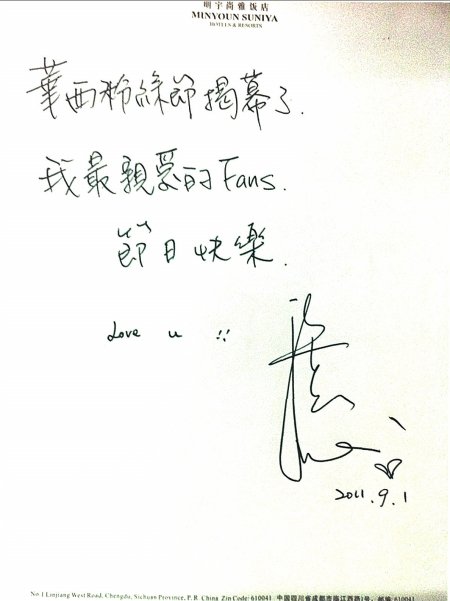 明宇尚雅饭店
MINYOUN SUNIYA
HOTELS & RESORTS
華西粉絲節揭幕了.
我最親愛的Fans.
節日快樂.
Love u !!
2011.9.1
No.1 Linjiang West Road, Chengdu, Sichuan Province, P.R. China Zip Code: 610041 中国四川省成都市临江西路1号, 邮编:610041